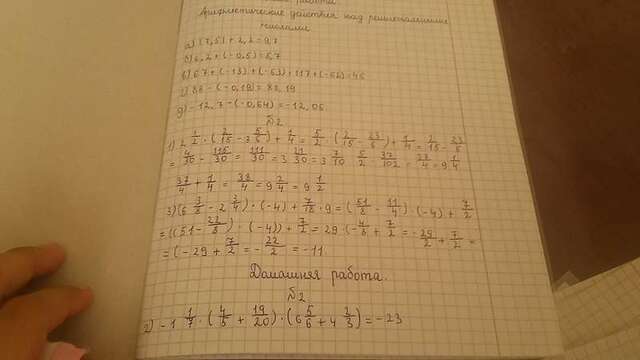 работа
Арифметические действия над рациональными
числами.
а) (7,5) + 2,2 = 9,7
б) 6,2 + (-0,5) = 5,7
в) 67 + (-13) + (-53) + 117 + (-56) =
г) 88 - (-0,19) = 88,19
д) -12,7 - (-0,64) = -12,06
№2
1) 2 1/2 · (2/15 - 3 5/6) + 1/4 = 5/2 · (2/15 - 23/6) + 1/4 = 2/15 - 23/6
= 4/30 - 115/30 = 111/30 = 3 21/30 = 3 7/10
37/4 + 1/4 = 38/4 = 9 2/4 = 9 1/2
3) (6 3/8 - 2 3/4) · (-4) + 7/18 · 9 = (51/8 - 11/4) · (-4) + 7/2
= ((51-22/8) · (-4)) + 7/2 = 29 · (-4/8 + 7/2 = -29/2 + 7/2 =
= (-29 + 7/2 = -22/2 = -11.
Домашняя работа.
№2
2) -1 1/7 · (4/5 + 19/20) · (6 5/6 + 4 2/3) = -23